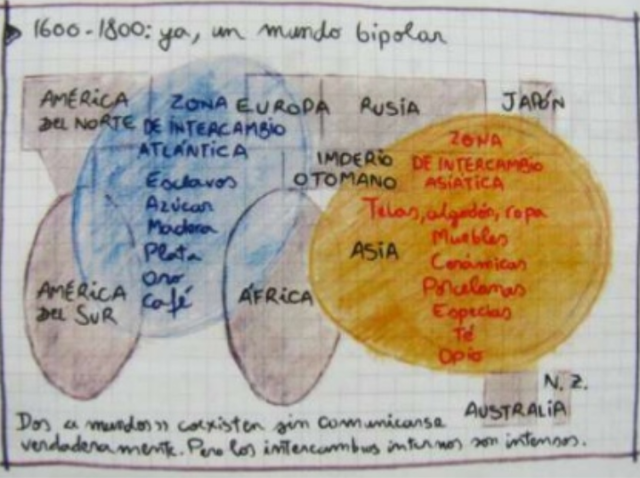 1600-1800: ya, un mundo bipolar
AMÉRICA
DEL NORTE
ZONA
DE INTERCAMBIO
ATLÁNTICA
Esclavos
Azúcar
Madera
Plata
Oro
Café
EUROPA
RUSIA
JAPÓN
IMPERIO
OTOMANO
ZONA
DE INTERCAMBIO
ASIÁTICA
Telas, algodón, ropa
Muebles
Cerámicas
Porcelanas
Especias
Té
Opio
ASIA
AMÉRICA
DEL SUR
ÁFRICA
N. Z.
AUSTRALIA
Dos «mundos» coexisten sin comunicarse
verdaderamente. Pero los intercambios internos son intensos.